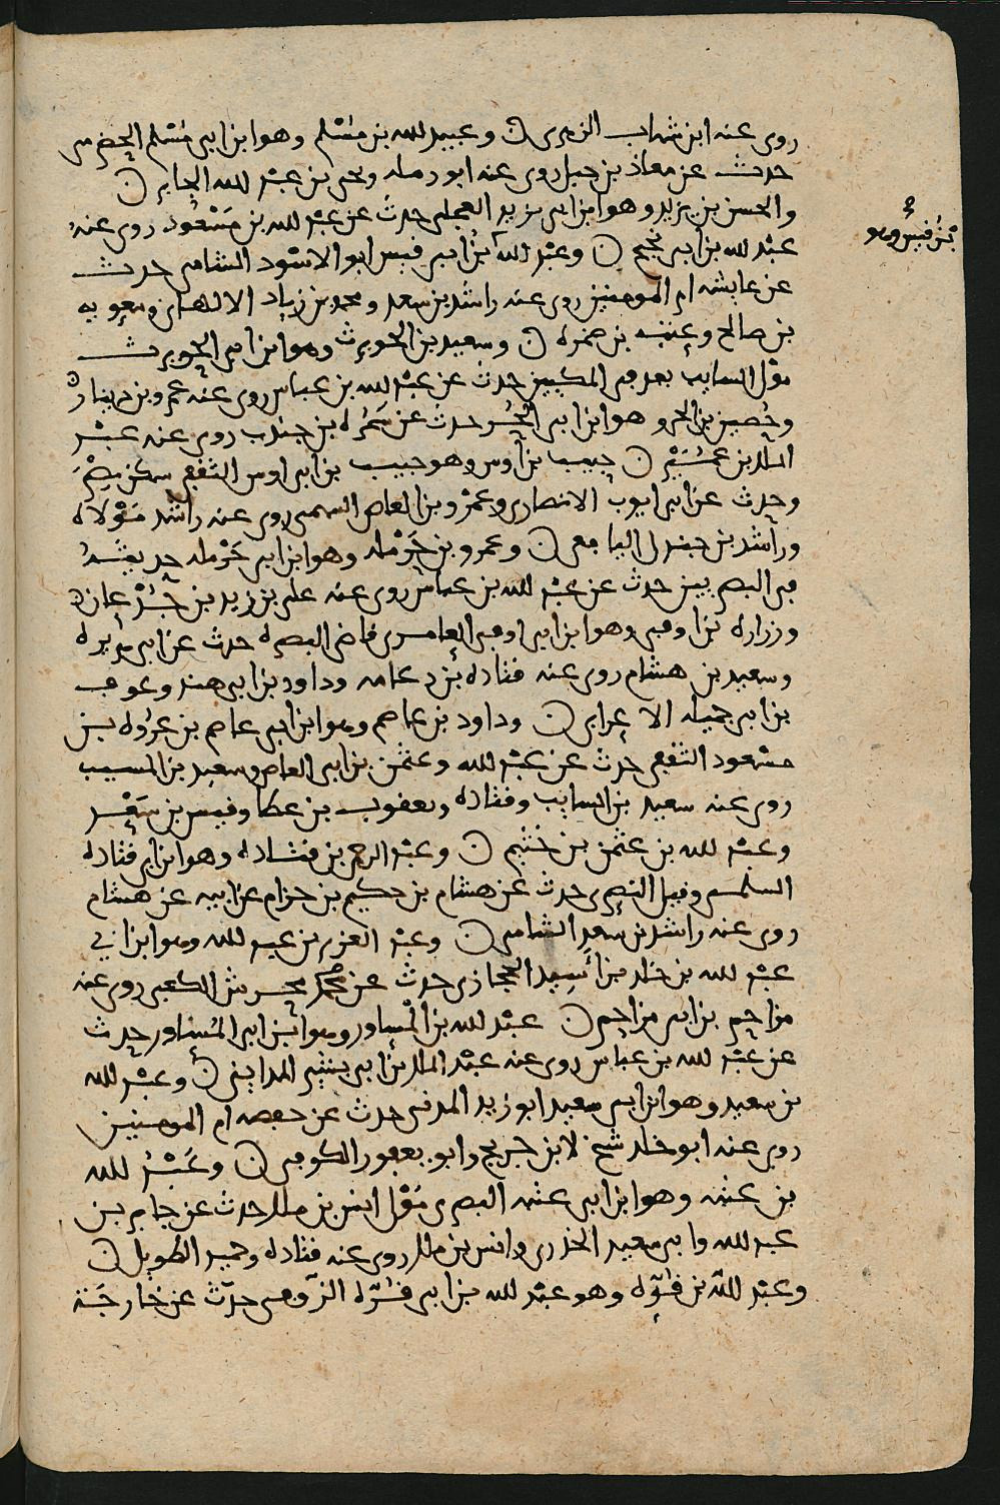 روى عنه ابن شهاب الزهرى ن وعبيد لله بن مسلم وهو ابن ابى مسلم الحضرمى
حدث عن معاذ بن جبل روى عنه ابو رمله ويحيى بن عبد لله الجابر ن
والحسن بن يزيد وهو ابن ابى يزيد العجلى حدث عن عبد لله بن مسعود روى عنه
عبد لله بن ابى نجيح ن وعبد لله بن ابى قيس ابو الاسود الشامى حدث
بن قيس وهو
صح
عن عايشه ام المومنين روى عنه راشد بن سعد ومحمد بن زياد الالهانى ومعويه
بن صالح وعتبه بن ضمره ن وسعيد بن الحويرث وهو ابن ابى الحويرث
مولى السايب يعد فى المكيين حدث عن عبد لله بن عباس روى عنه عمرو بن دينار ن
وحصين بن الحر وهو ابن ابى الحر حدث عن سمره بن جندب روى عنه عبد
الملك بن عمير ن حبيب بن اوس وهو حبيب بن ابى اوس الثقفى سكن مصر
وحدث عن ابى ايوب الانصارى وعمرو بن العاص السهمى روى عنه راشد مولاه
وراشد بن جندل اليافعى ن وعمرو بن حرمله وهو ابن ابى حرمله حديثه
فى البصريين حدث عن عبد لله بن عباس روى عنه على بن زيد بن جدعان ن
وزراره بن اوفى وهو ابن ابى اوفى العامرى قاضى البصره حدث عن ابى هريره
وسعيد بن هشام روى عنه قتاده بن دعامه وداود بن ابى هند وعوف
بن ابى جميله الاعرابى ن وداود بن عاصم وهو ابن ابى عاصم بن عروه بن
مسعود الثقفى حدث عن عبد لله وعثمن بن ابى العاص وسعيد بن المسيب
روى عنه سعيد بن السايب وقتاده ويعقوب بن عطا وقيس بن سعد
وعبد لله بن عثمن بن خثيم ن وعبد الرحمن بن قتاده وهو ابن ابى قتاده
السلمى وقيل النصرى حدث عن هشام بن حكيم بن حزام عن ابيه عن هشام
روى عنه راشد بن سعد الشامى ن وعبد العزيز بن عبد لله وهو ابن ابي
عبد لله بن خلد بن اسيد الحجازى حدث عن محرش الكعبى روى عنه
مزاحم بن ابى مزاحم ن عبد لله بن المساور وهو ابن ابى المساور حدث
عن عبد لله بن عباس روى عنه عبد الملك بن ابى بشير المداينى ن وعبد لله
بن سعيد وهو ابن ابى سعيد ابو زيد المدنى حدث عن حفصه ام المومنين
روى عنه ابو خلد شيخ لابن جريج وابو يعفور الكوفى ن وعبد لله
بن عتبه وهو ابن ابى عتبه البصرى مولى انس بن ملك حدث عن جابر بن
عبد لله وابى سعيد الخدرى وانس بن ملك روى عنه قتاده وحميد الطويل ن
وعبد لله بن قره وهو عبد لله بن ابى قره الزوفى حدث عن خارجة